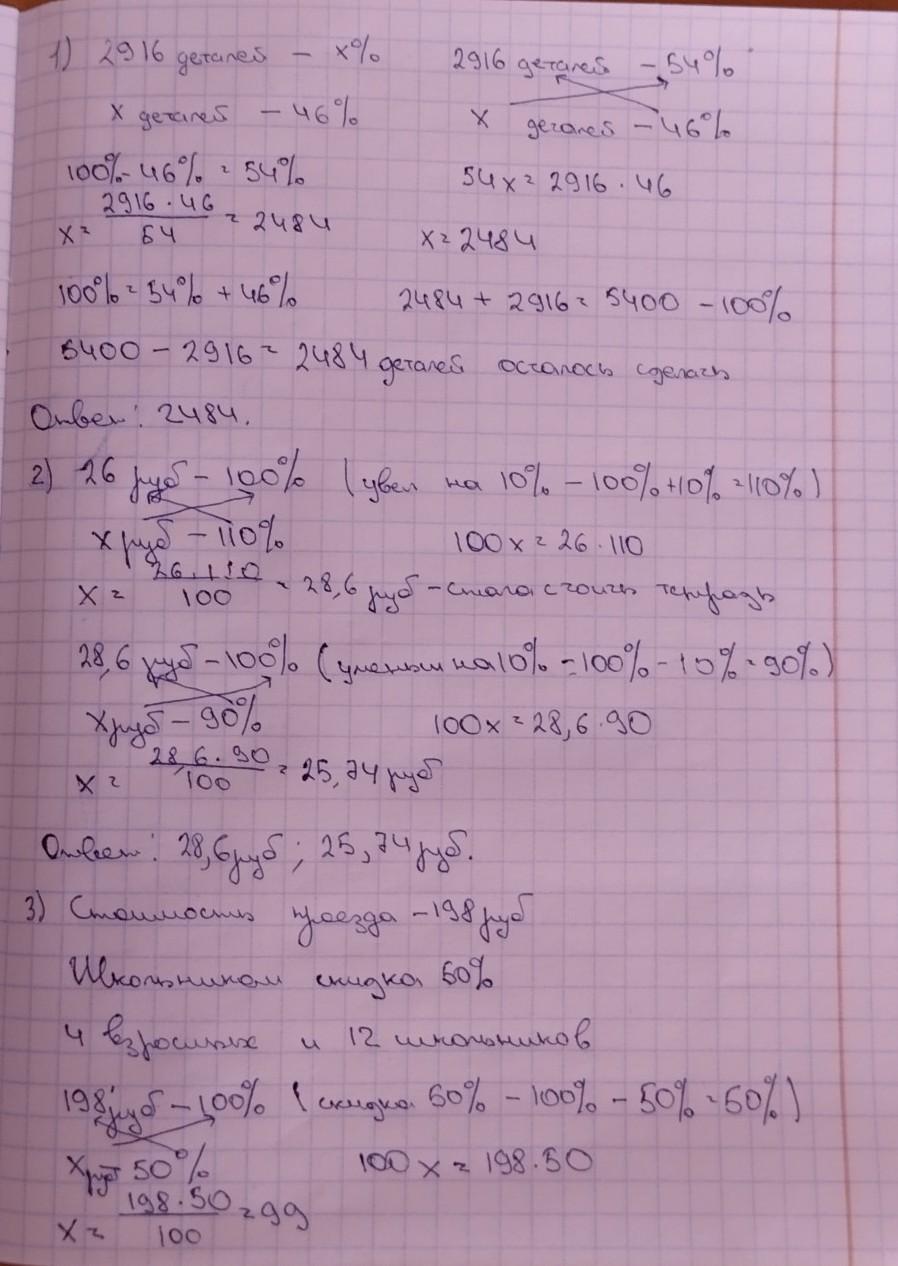 1) 2916 деталей - x% 2916 деталей - 54%
x деталей - 46% x деталей - 46%
100% - 46% = 54% 54x = 2916 · 46
x = 2916 · 46 / 54 = 2484 x = 2484
100% = 54% + 46% 2484 + 2916 = 5400 - 100%
5400 - 2916 = 2484 деталей осталось сделать
Ответ: 2484.
2) 26 руб - 100% (увел на 10% - 100% + 10% = 110%)
x руб - 110% 100x = 26 · 110
x = 26 · 110 / 100 = 28,6 руб - стала стоить тетрадь
28,6 руб - 100% (уменьш на 10% = 100% - 10% = 90%)
x руб - 90% 100x = 28,6 · 90
x = 28,6 · 90 / 100 = 25,74 руб
Ответ: 28,6 руб; 25,74 руб.
3) Стоимость проезда - 198 руб
Школьникам скидка 50%
4 взрослых и 12 школьников
198 руб - 100% (скидка 50% - 100% - 50% = 50%)
x руб 50% 100x = 198 · 50
x = 198 · 50 / 100 = 99